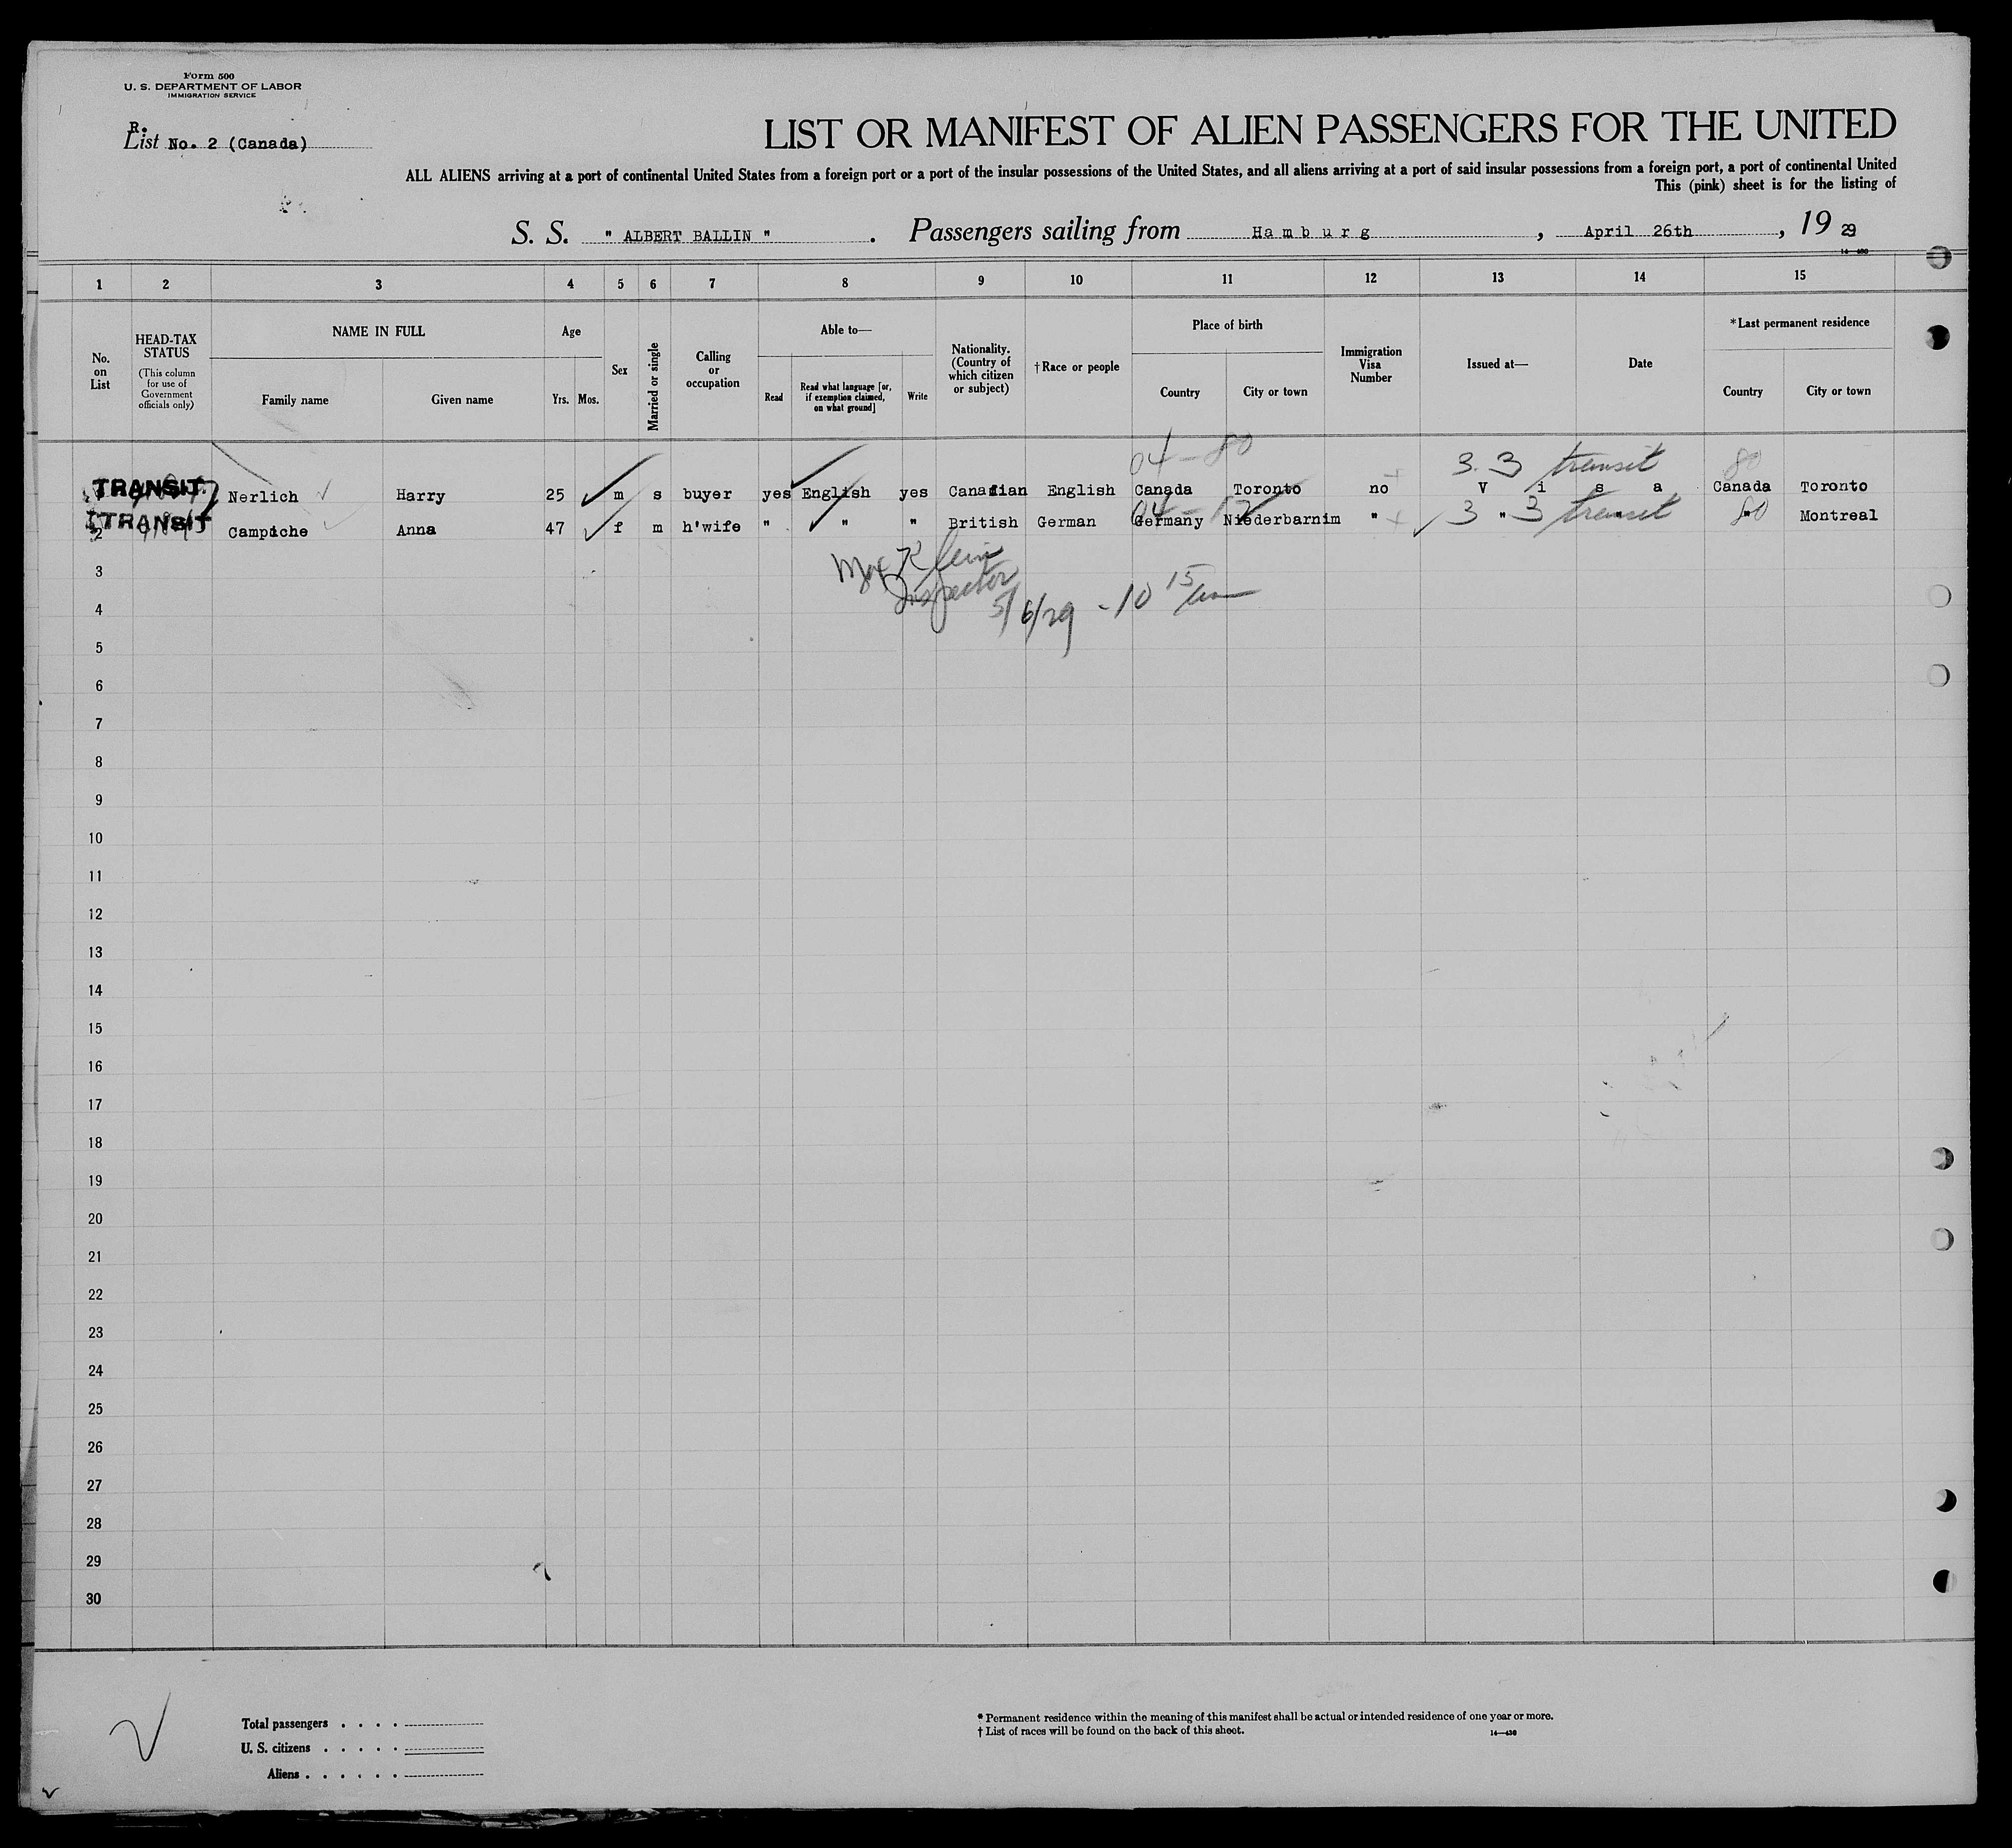 Form 500
U. S. DEPARTMENT OF LABOR
IMMIGRATION SERVICE
R.
List No. 2 (Canada)
LIST OR MANIFEST OF ALIEN PASSENGERS FOR THE UNITED
ALL ALIENS arriving at a port of continental United States from a foreign port or a port of the insular possessions of the United States, and all aliens arriving at a port of said insular possessions from a foreign port, a port of continental United
This (pink) sheet is for the listing of
S. S. " ALBERT BALLIN ". Passengers sailing from Hamburg, April 26th, 19 29
14-430
1 2 3 4 5 6 7 8 9 10 11 12 13 14 15
No. on List
HEAD-TAX STATUS
(This column for use of Government officials only)
NAME IN FULL
Family name Given name
Age
Yrs. Mos.
Sex
Married or single
Calling or occupation
Able to—
Read
Read what language [or, if exemption claimed, on what ground]
Write
Nationality. (Country of which citizen or subject)
†Race or people
Place of birth
Country City or town
Immigration Visa Number
Issued at—
Date
*Last permanent residence
Country City or town
04-80 3.3 transit 80
TRANSIT Nerlich Harry 25 m s buyer yes English yes Canadian English Canada Toronto no V i s a Canada Toronto
04-12 3 3 transit 80
2 TRANSIT Campiche Anna 47 f m h'wife " " " British German Germany Niederbarnim " " " " Montreal
Max Klein
Inspector
5/6/29 - 10 15
3
4
5
6
7
8
9
10
11
12
13
14
15
16
17
18
19
20
21
22
23
24
25
26
27
28
29
30
Total passengers . . . .
U. S. citizens . . . . .
Aliens . . . . . .
* Permanent residence within the meaning of this manifest shall be actual or intended residence of one year or more.
† List of races will be found on the back of this sheet.
14-430